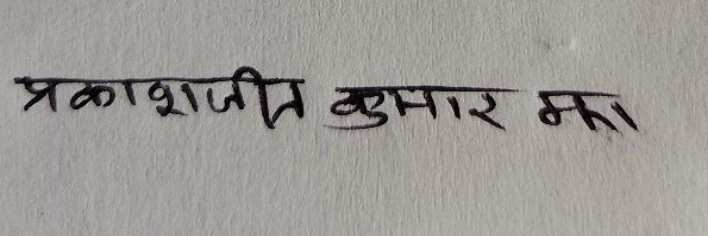 प्रकाशजीत कुमार झा